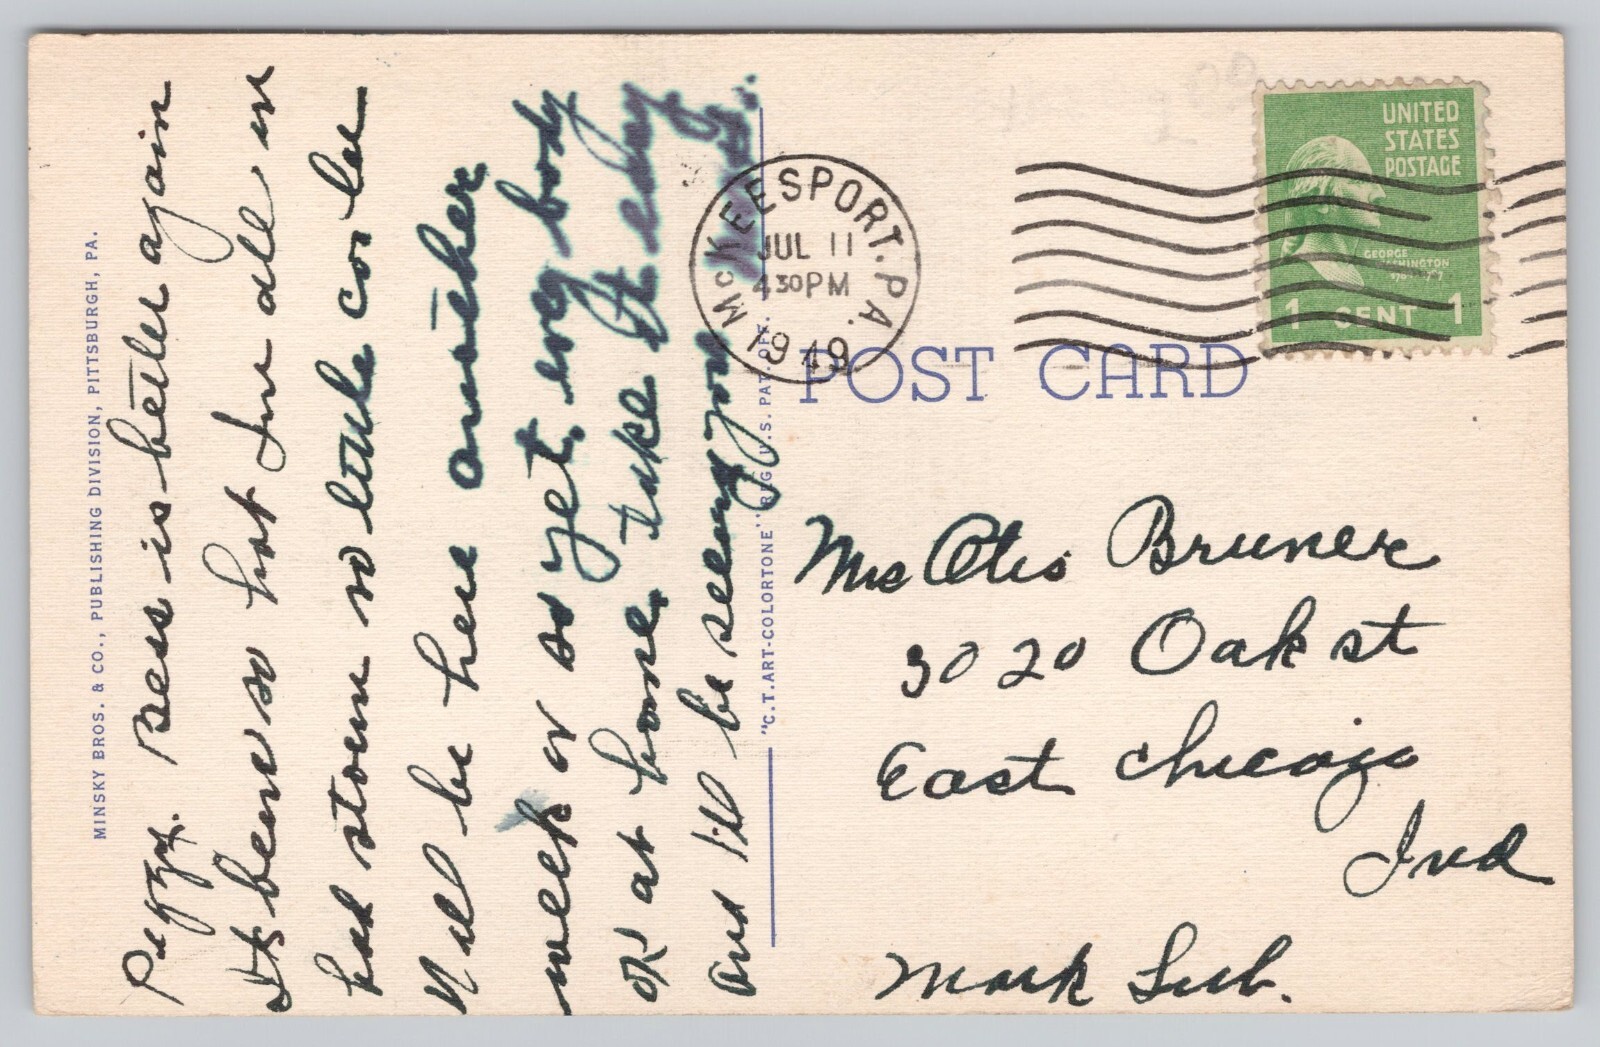 MINSKY BROS. & CO., PUBLISHING DIVISION, PITTSBURGH, PA.
Peggy. Bess is better again
its been so hot Im all in
had storm so little cooler
Will be here another
week or so yet, every body
ok at home, take it easy
and I'll be seeing you
"C.T. ART-COLORTONE" REG. U.S. PAT. OFF.
McKEESPORT, PA.
JUL 11
430 PM
1949
UNITED
STATES
POSTAGE
GEORGE
WASHINGTON
1 CENT 1
POST CARD
Mrs Otis Bruner
3020 Oak st
East Chicago
Ind
Mark Sub.